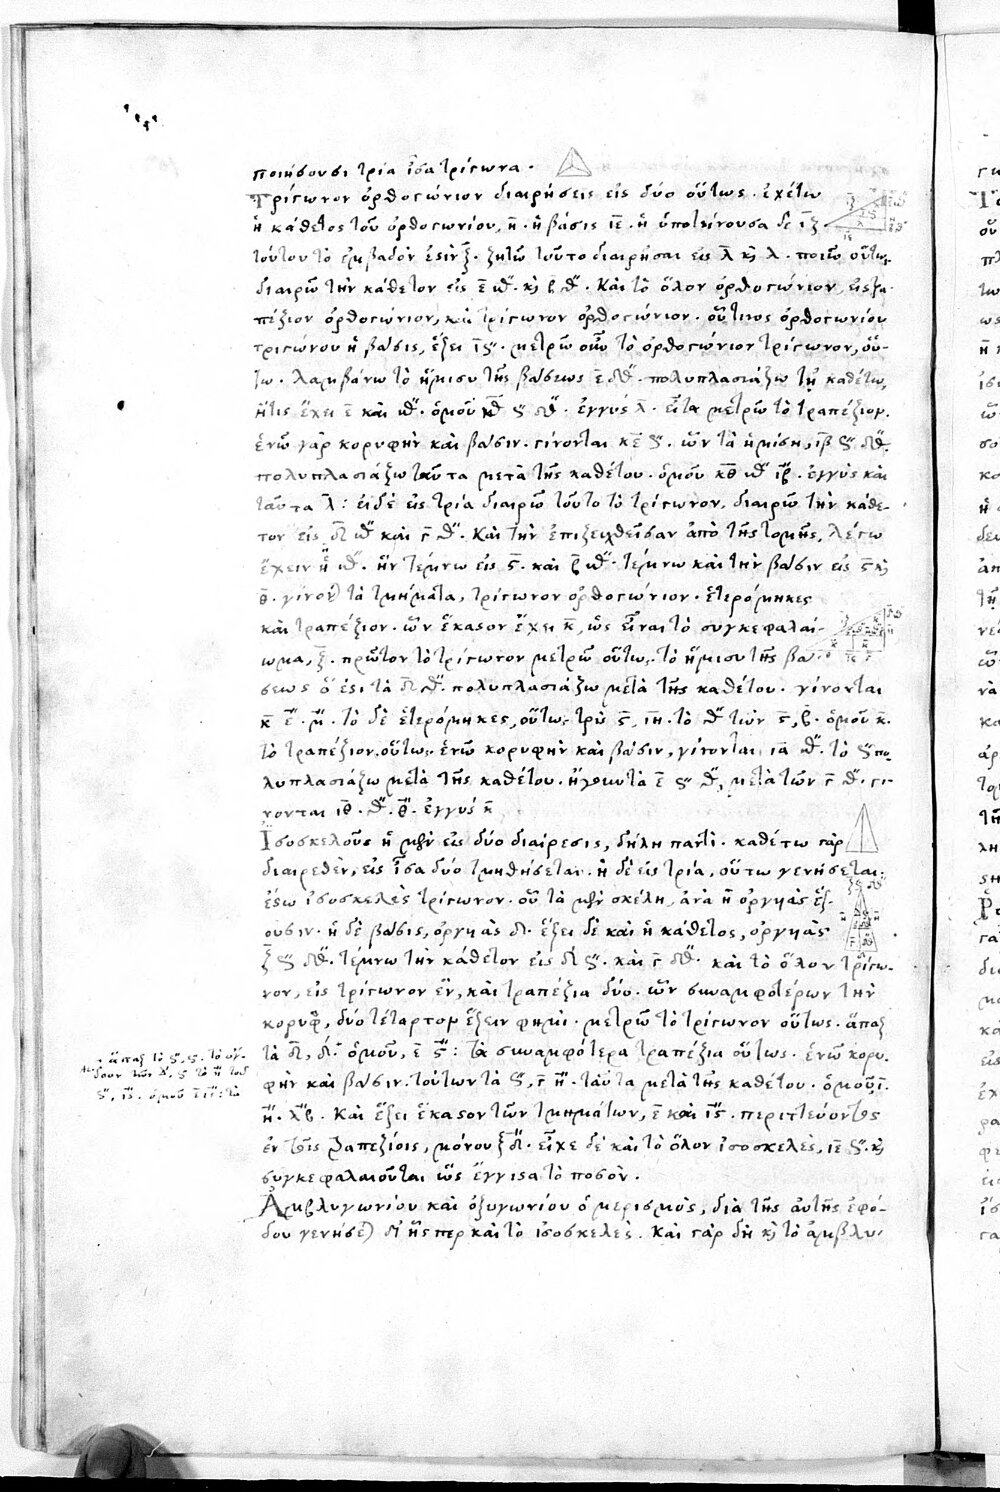 ποιήσουσι τρία ἴσα τρίγωνα.
Τρίγωνον ὀρθογώνιον διαιρήσεις εἰς δύο οὕτως. ἐχέτω
ἡ κάθετος τοῦ ὀρθογωνίου, η̄. ἡ βάσις ιε̄. ἡ ὑποτείνουσα δὲ ιζ̄
τούτου τὸ ἐμβαδὸν ἐστὶν ξ̄. ζητῶ τοῦτο διαιρῆσαι εἰς λ̄ κ̀ λ. ποιῶ οὕτως.
διαιρῶ τὴν κάθετον εἰς ε̄ καὶ τὸ ὅλον ὀρθογώνιον, εἰς τρα
πέζιον ὀρθογώνιον, καὶ τρίγωνον ὀρθογώνιον. οὗτινος ὀρθογωνίου
τριγώνου ἡ βάσις, ἕξει μετρῶ οὖν τὸ ὀρθογώνιον τρίγωνον, οὕ-
τω. λαμβάνω τὸ ἥμισυ τῆς βάσεως πολυπλασιάζω τῇ καθέτω,
ἥτις ἔχει ε̄ καὶ ὁμοῦ ἐγγύς λ̄. εἶτα μετρῶ τὸ τραπέζιον.
ἑνῶ γὰρ κορυφὴν καὶ βάσιν. γίνονται κε̄ ὧν τὰ ἡμίση, ιβ̄
πολυπλασιάζω ταῦτα μετὰ τῆς καθέτου. ὁμοῦ κθ̄ ἐγγὺς καὶ
ταῦτα λ̄: εἰ δὲ εἰς τρία διαιρῶ τοῦτο τὸ τρίγωνον, διαιρῶ τὴν κάθε-
τον εἰς δ̄ καὶ γ̄ καὶ τὴν ἐπιζευχθεῖσαν ἀπὸ τῆς τομῆς, λέγω
ἔχειν η̄ ἣν τέμνω εἰς ς̄. καὶ β̄ τέμνω καὶ τὴν βάσιν εἰς ς̄ κ̀
θ̄. γίνον) τὰ τμήματα, τρίγωνον ὀρθογώνιον. ἑτερόμηκες
καὶ τραπέζιον. ὧν ἕκαστον ἔχει κ̄, ὡς εἶναι τὸ συγκεφαλαί-
ωμα, ξ̄. πρῶτον τὸ τρίγωνον μετρῶ οὕτω. τὸ ἥμισυ τῆς βά
σεως ὅ ἐστι τὰ δ̄ πολυπλασιάζω μετὰ τῆς καθέτου. γίνονται
κ̄ τὸ δὲ ἑτερόμηκες, οὕτω. τρὶς ς̄, ιη̄. τὸ τῶν ς̄, β̄. ὁμοῦ κ̄.
τὸ τραπέζιον, οὕτω. ἑνῶ κορυφὴν καὶ βάσιν, γίνονται ιᾱ τὸ πο
λυπλασιάζω μετὰ τῆς καθέτου. ἤγουν τὰ ε̄ μετὰ τῶν γ̄ γί-
νονται ιθ̄. ἐγγύς κ̄
Ἰσοσκελοῦς ἡ μὲν εἰς δύο διαίρεσις, δήλη παντί. καθέτω γὰρ
διαιρεθὲν, εἰς ἴσα δύο τμηθήσεται. ἡ δὲ εἰς τρία, οὕτω γενήσεται.
ἔστω ἰσοσκελὲς τρίγωνον. οὗ τὰ μὲν σκέλη, ἀνὰ η̄ ὀργυιὰς ἕξ-
ουσιν. ἡ δὲ βάσις, ὀργυιὰς δ̄. ἕξει δὲ καὶ ἡ κάθετος, ὀργυιὰς
ζ̄ τέμνω τὴν κάθετον εἰς δ̄ καὶ γ̄ καὶ τὸ ὅλον τρίγω-
νον, εἰς τρίγωνον ἓν, καὶ τραπέζια δύο. ὧν συναμφοτέρων τὴν
κορυφὴν, δύο τέταρτον ἕξειν φημί. μετρῶ τὸ τρίγωνον οὕτως. ἅπαξ
τὰ δ̄, δ̄. ὁμοῦ, ε̄ τὰ συναμφότερα τραπέζια οὕτως. ἑνῶ κορυ-
φὴν καὶ βάσιν. τούτων τὰ γ̄ ταῦτα μετὰ τῆς καθέτου. ὁμοῦ, ῑ.
καὶ ἕξει ἕκαστον τῶν τμημάτων, ε̄ καὶ περιττεύοντος
ἐν τοῖς τραπεζίοις, μόνου εἶχε δὲ καὶ τὸ ὅλον ἰσοσκελὲς, ιε̄ κ̀
συγκεφαλαιοῦται ὡς ἔγγιστα τὸ ποσόν.
Ἀμβλυγωνίου καὶ ὀξυγωνίου ὁ μερισμὸς, διὰ τῆς αὐτῆς ἐφό-
δου γενήσε) δι' ἧσπερ καὶ τὸ ἰσοσκελὲς. καὶ γὰρ δὴ κ̀ τὸ ἀμβλυ-